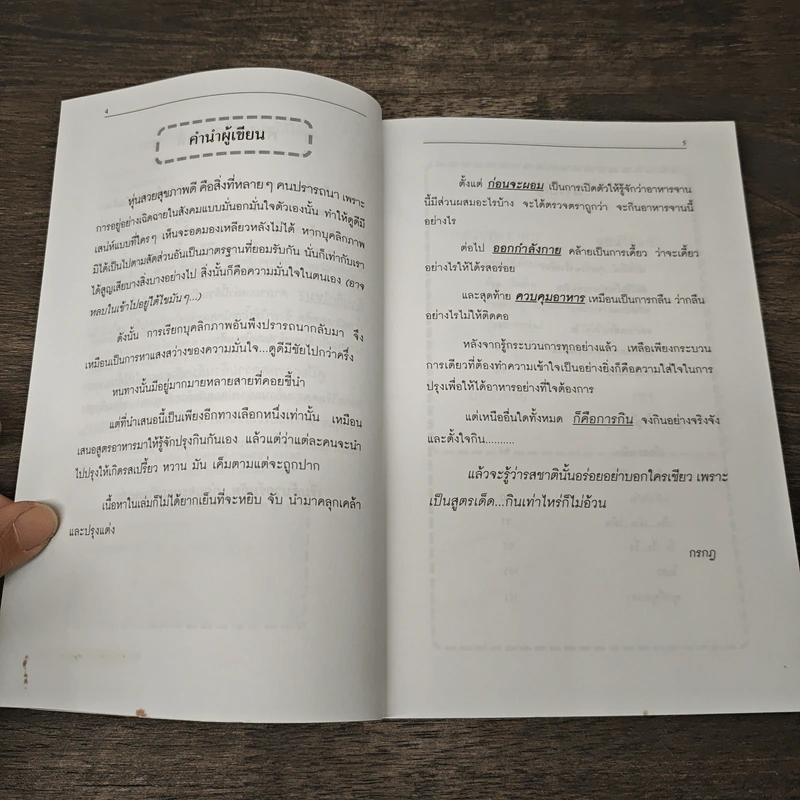 4
คำนำผู้เขียน
หุ่นสวยสุขภาพดี คือสิ่งที่หลาย ๆ คนปรารถนา เพราะ
การอยู่อย่างเฉิดฉายในสังคมแบบมั่นอกมั่นใจตัวเองนั้น ทำให้ดูดีมี
เสน่ห์แบบที่ใคร ๆ เห็นจะอดมองเหลียวหลังไม่ได้ หากบุคลิกภาพ
มิได้เป็นไปตามสัดส่วนอันเป็นมาตรฐานที่ยอมรับกัน นั่นก็เท่ากับเรา
ได้สูญเสียบางสิ่งบางอย่างไป สิ่งนั้นก็คือความมั่นใจในตนเอง (อาจ
หลบในเข้าไปอยู่ใต้ไขมัน ๆ...)
ดังนั้น การเรียกบุคลิกภาพอันพึงปรารถนากลับมา จึง
เหมือนเป็นการหาแสงสว่างของความมั่นใจ...ดูดีมีชัยไปกว่าครึ่ง
หนทางนั้นมีอยู่มากมายหลายสายที่คอยชี้นำ
แต่ที่นำเสนอนี้เป็นเพียงอีกทางเลือกหนึ่งเท่านั้น เหมือน
เสนอสูตรอาหารมาให้รู้จักปรุงกินกันเอง แล้วแต่ว่าแต่ละคนจะนำ
ไปปรุงให้เกิดรสเปรี้ยว หวาน มัน เค็มตามแต่จะถูกปาก
เนื้อหาในเล่มก็ไม่ได้ยากเย็นที่จะหยิบ จับ นำมาคลุกเคล้า
และปรุงแต่ง
5
ตั้งแต่ ก่อนจะผอม เป็นการเปิดตัวให้รู้จักว่าอาหารจาน
นี้มีส่วนผสมอะไรบ้าง จะได้ตรวจตราถูกว่า จะกินอาหารจานนี้
อย่างไร
ต่อไป ออกกำลังกาย คล้ายเป็นการเคี้ยว ว่าจะเคี้ยว
อย่างไรให้ได้รสอร่อย
และสุดท้าย ควบคุมอาหาร เหมือนเป็นการกลืน ว่ากลืน
อย่างไรไม่ให้ติดคอ
หลังจากรู้กระบวนการทุกอย่างแล้ว เหลือเพียงกระบวน
การเดียวที่ต้องทำความเข้าใจเป็นอย่างยิ่งก็คือความใส่ใจในการ
ปรุงเพื่อให้ได้อาหารอย่างที่ใจต้องการ
แต่เหนืออื่นใดทั้งหมด ก็คือการกิน จงกินอย่างจริงจัง
และตั้งใจกิน..........
แล้วจะรู้ว่ารสชาตินั้นอร่อยอย่าบอกใครเชียว เพราะ
เป็นสูตรเด็ด...กินเท่าไหร่ก็ไม่อ้วน
กรกฎ